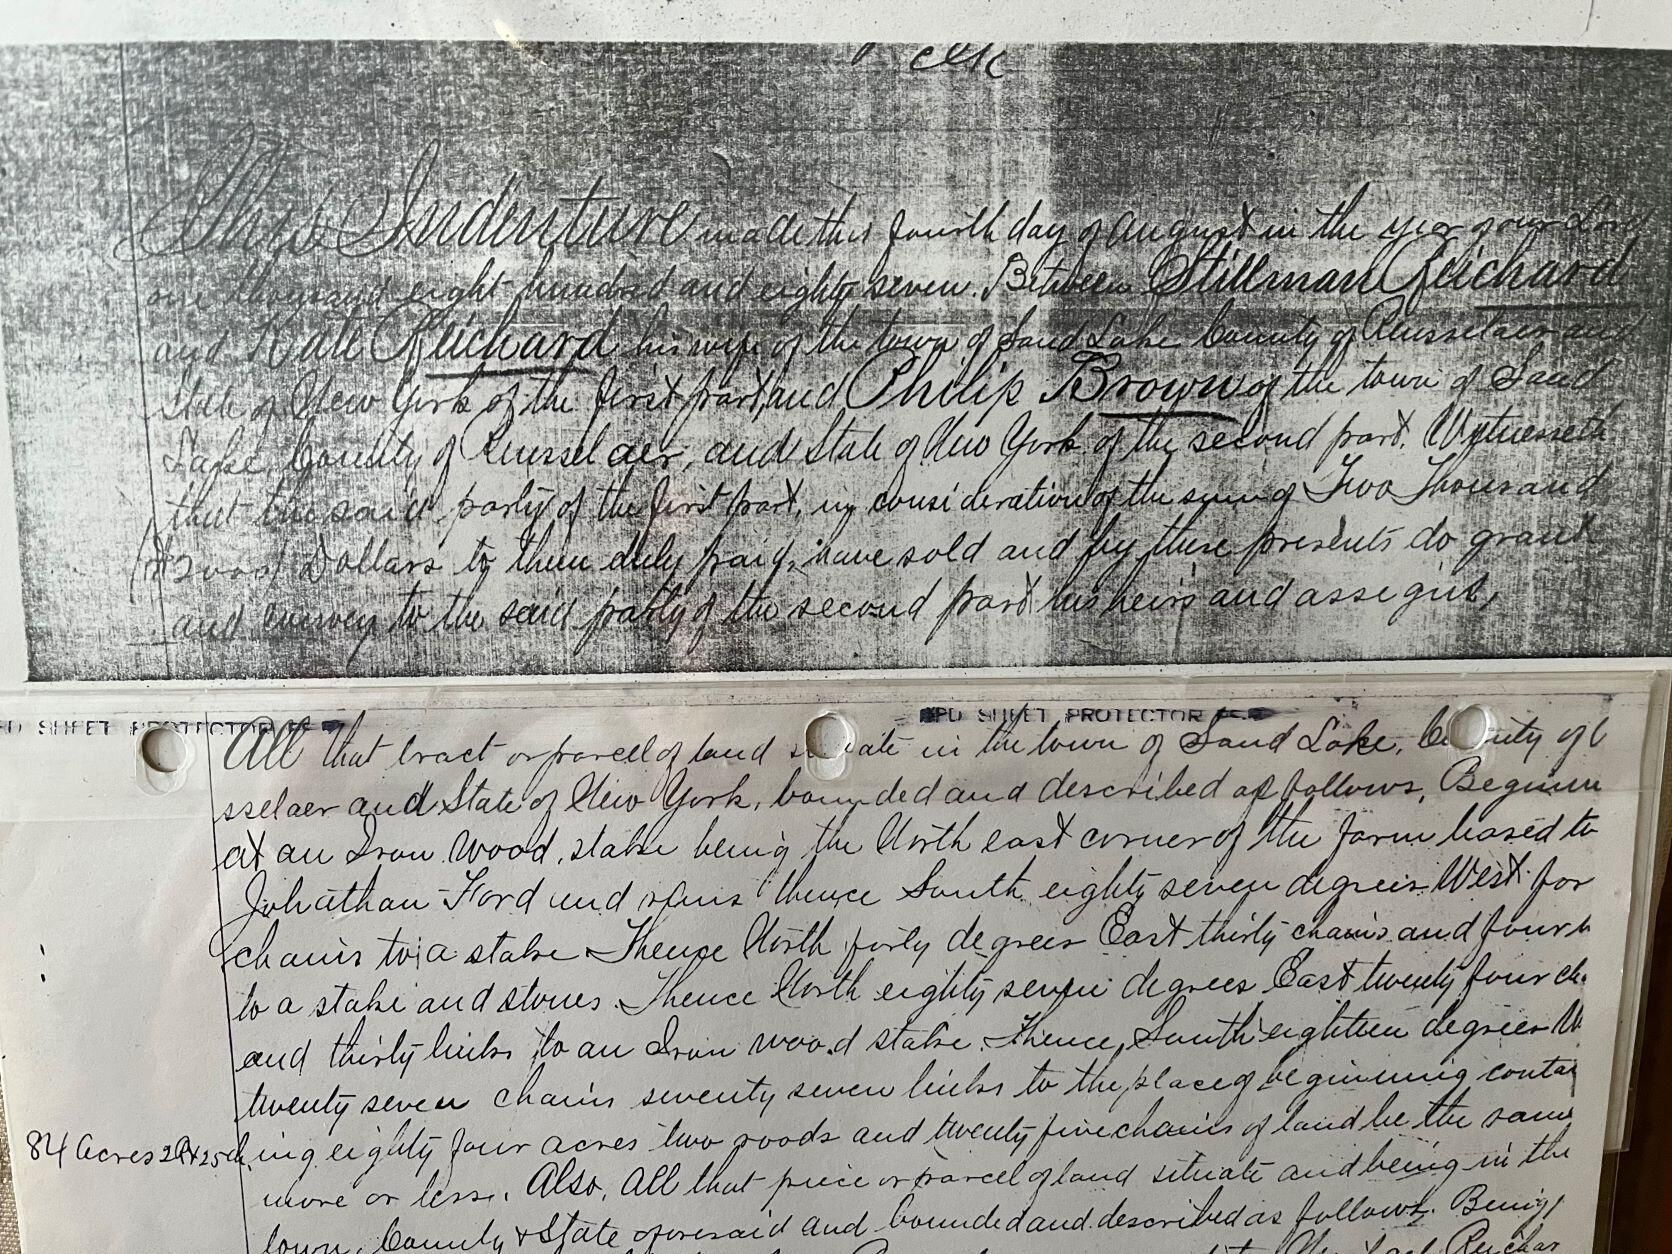 This Indenture made this fourth day of August in the year of our Lord
one thousand eight hundred and eighty seven. Between Stillman Reichard
and Kate Reichard his wife of the town of Sand Lake County of Rensselaer and
State of New York of the first part, and Philip Brown of the town of Sand
Lake, County of Rensselaer, and State of New York of the second part. Wytnesseth
that the said party of the first part, in consideration of the sum of Two Thousand
Dollars to them duly paid, have sold and by these presents do grant
and convey to the said party of the second part his heirs and assigns,
PD SHEET PROTECTOR
PD SHEET PROTECTOR
All that tract or parcel of land situate in the town of Sand Lake, County of
sselaer and State of New York, bounded and described as follows, Beginn
at an Iron wood, stake being the North east corner of the farm leased to
Johathan Ford and runs thence South eighty seven degrees West for
chains to a stake Thence North forty degrees East thirty chains and four
to a stake and stones. Thence North eighty seven degrees East twenty four ch
and thirty links to an Iron wood stake. Thence South eighteen degrees W
twenty seven chains seventy seven links to the place of beginning contai
84 Acres 2R & 25ch ing eighty four acres two roods and twenty five chains of land be the same
more or less. Also, All that piece or parcel of land situate and being in the
town, County & State aforesaid and bounded and described as follows. Being
Reichar